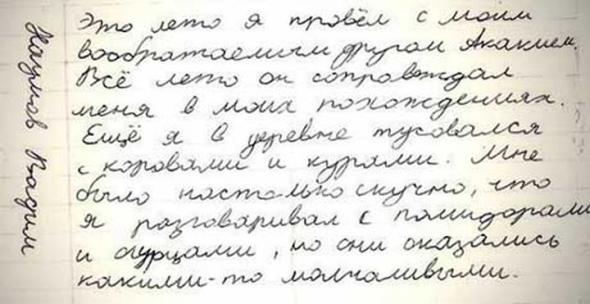 Это лето я провёл с моим
воображаемым другом Акакием.
Всё лето он сопровждал
меня в моих похождениях.
Ещё я в деревне тусовался
с коровами и курями. Мне
было настолько скучно, что
я разговаривал с помидорами
и огурцами, но они оказались
какими-то молчаливыми.
Наумов Вадим